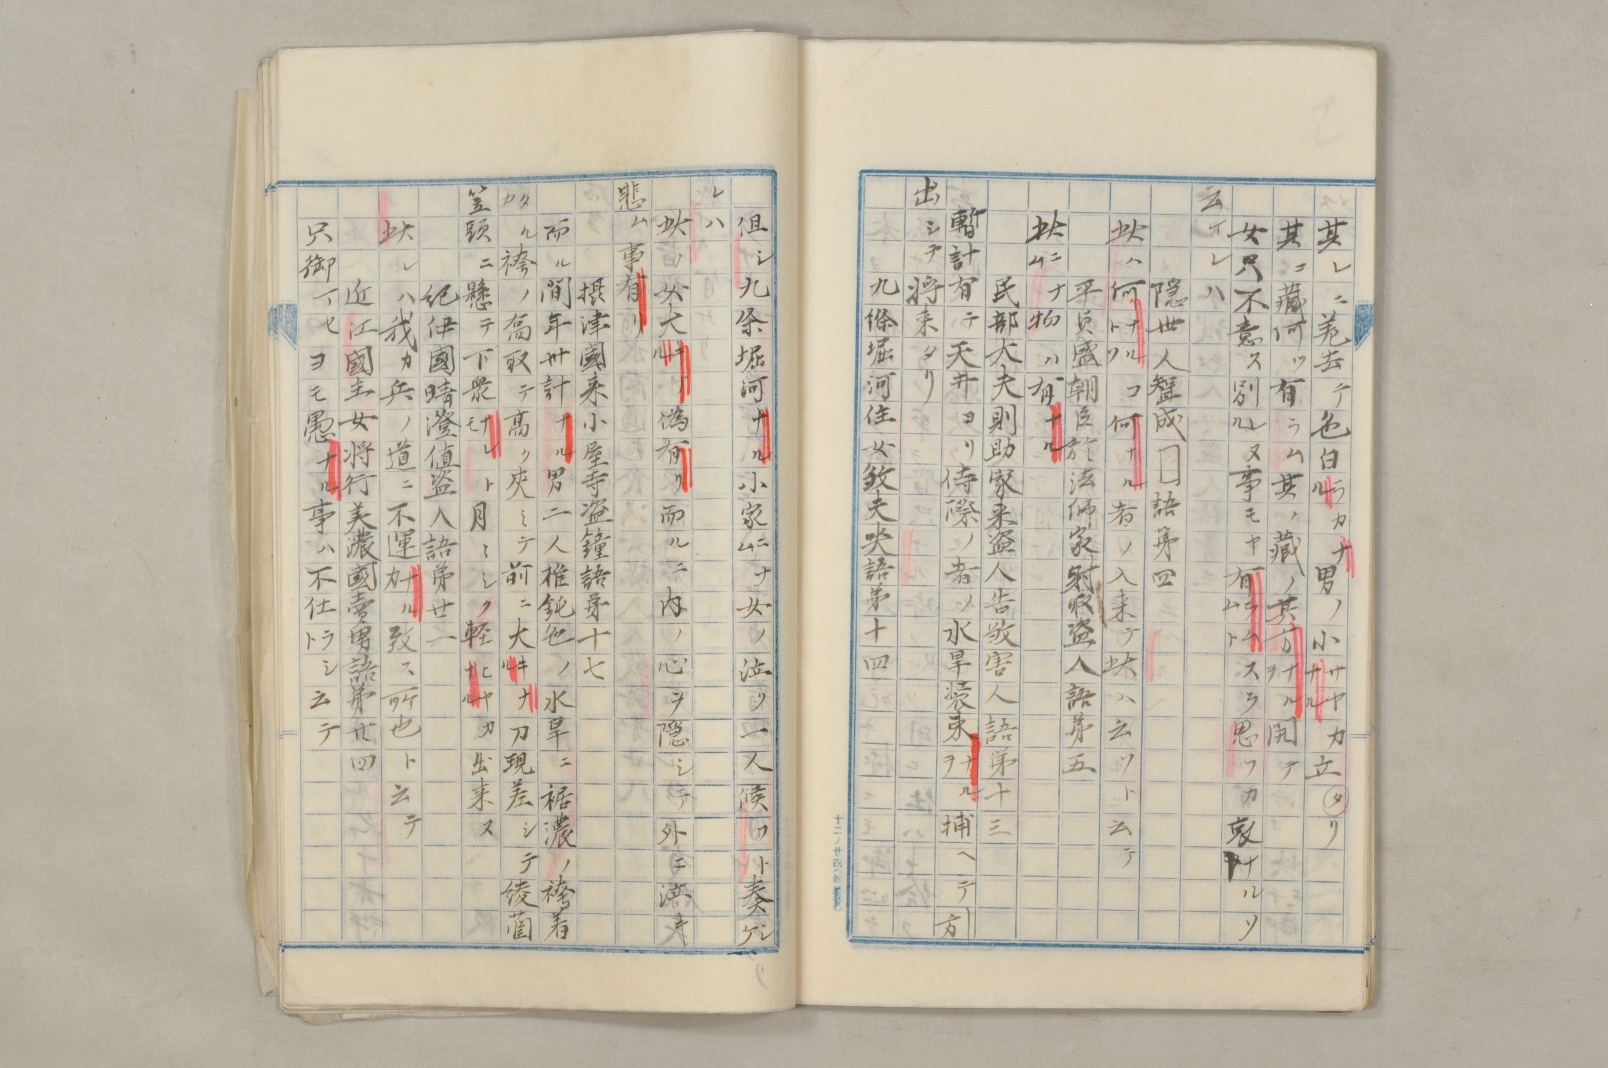 其レニ差去テ色白ラカナル男ノ小サヤカナル立タリ
其ニ藏何ツ有ラム其ノ藏ノ其ヲ方ナル開テ
女只不意ス別ルレヌ事モヤ有ラムトスラ思フカ哀ナルソ
云ケレハ
隠世人聟成□語第四
此ハ何ナルコトソ何ナル者ノ入来テ此ハ云フトト云テ
平貞盛朝臣於法師家射取盗人語第五
此ニナム物ハ有ナル
民部大夫則助家来盗人告殺害人語第十三
暫計有テ天井ヨリ侍際ノ者ソ水旱装束ナルヲ捕ヘテ方
出シテ将来タリ
九條堀河住女殺夫哭語第十四
但シ九条堀河ナル小家ニナム女ノ泣ク一人候フト奏ケシ
レハ
此ノ女大ルニ偽有リ而ルニ内ノ心ヲ隠シテ外ニ泣キ
悲ム事有リ
摂津國来小屋寺盗鐘語第十七
而ル間年卅計ナル男二人椎鈍色ノ水旱ニ裾濃ノ袴着
タル袴ノ高扠テ高ク夾ミテ前ニ大キナル刀現差シテ綾藺
笠頭ニ懸テ下衆ナレトモ月ミシク軽ヒヤカナル出来ヌ
紀伊國晴澄値盗人語第廿一
此レハ我カ兵ノ道ニ不運ナルカ致ス所也ト云テ
近江國主女将行美濃國賣男語第廿四
只御マセヨモ愚ナル事ハ不仕ラシト云テ